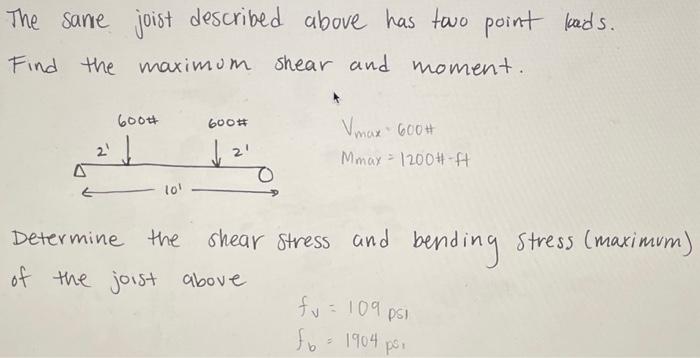 The same joist described above has two point loads.
Find the maximum shear and moment.
600# 600#
Vmax = 600#
2' 2'
Mmax = 1200#-ft
10'
Determine the shear stress and bending stress (maximum)
of the joist above
fv = 109 psi
fb = 1904 psi